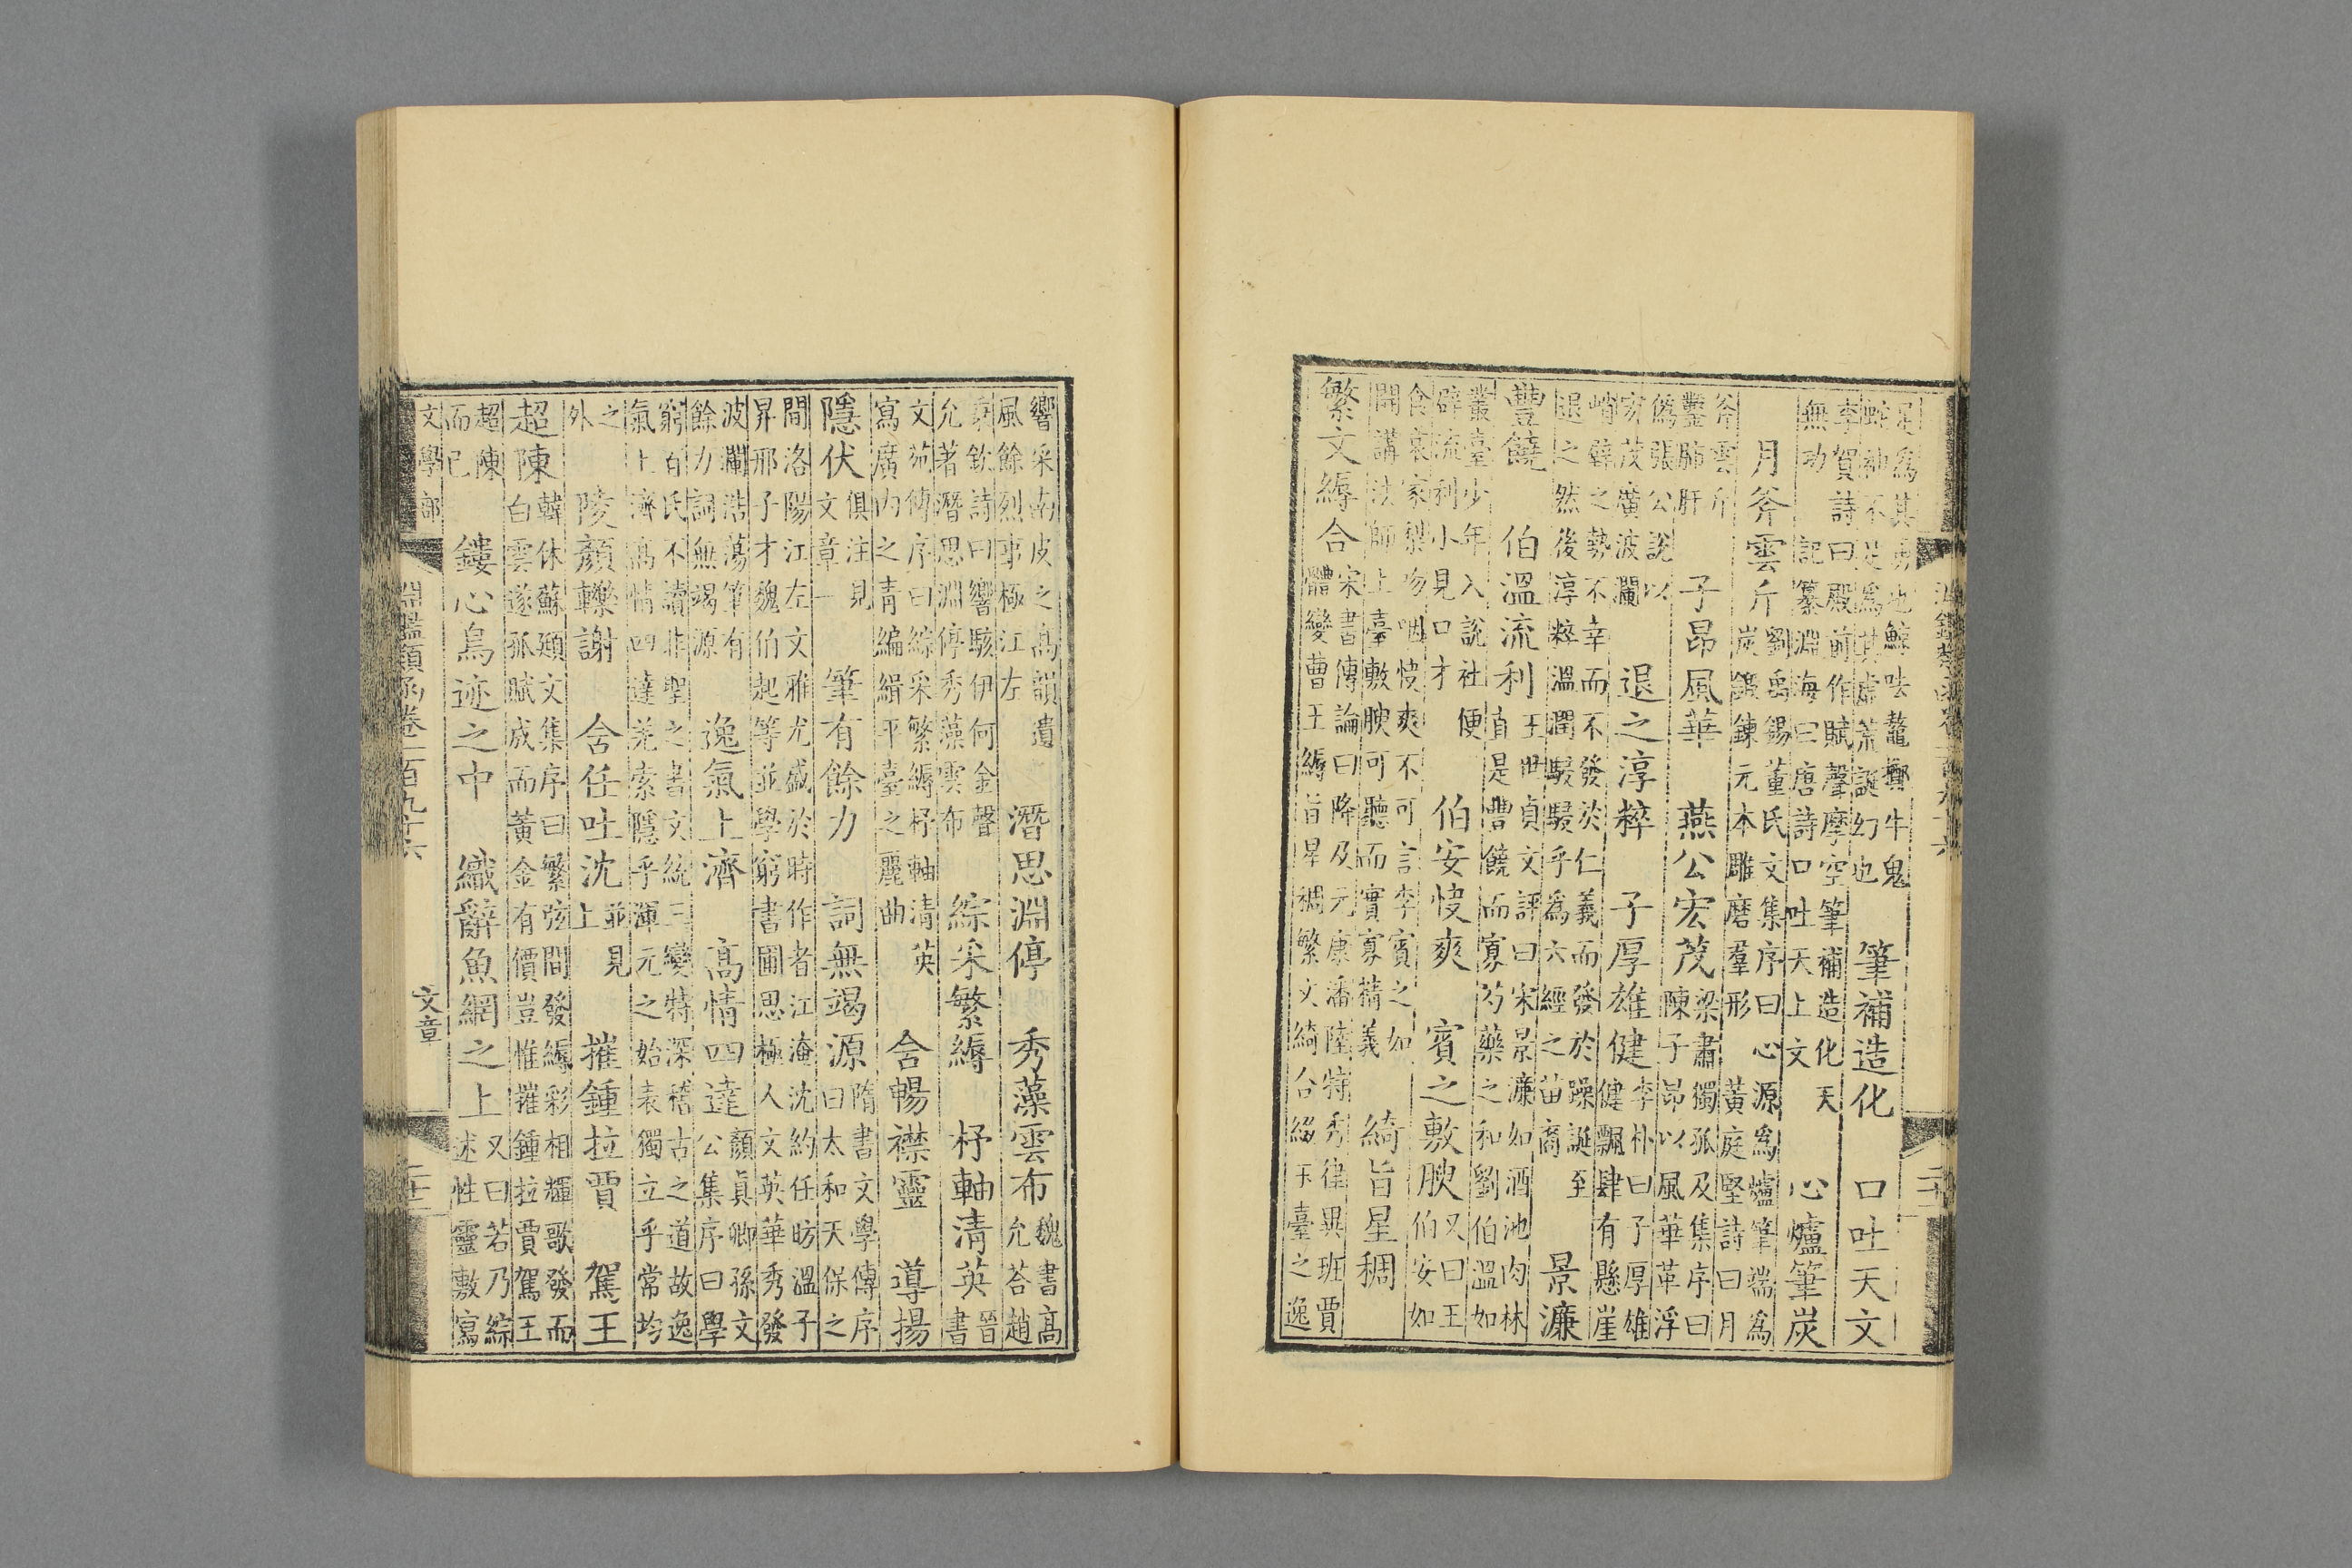 足爲其勇也鯨呿鼇擲牛鬼
蛇神不足爲其虛荒誕幻也
筆補造化
口吐天文
李賀詩曰殿前作賦聲摩空筆補造化天
無功記纂淵海曰唐詩口吐天上文
心爐筆炭
月斧雲斤
劉禹錫董氏文集序曰心源爲爐筆端爲
炭鍛鍊元本雕磨羣形
黃庭堅詩曰月
斧雲斤
鑿肺肝
子昂風華
燕公宏茂
梁肅獨孤及集序曰
陳子昂以風華革浮
僞張公說以
宏茂廣波瀾
退之淳粹
子厚雄健
李朴曰子厚雄
健飄肆有懸崖
峭壁之勢不幸而不發於仁義而發於躁誕至
退之然後淳粹溫潤駸駸乎爲六經之苗裔
景濂
豐饒
伯溫流利
王世貞文評曰宋景濂如酒池肉林
直是豐饒而寡芍藥之和劉伯溫如
叢臺少年入說社便
辟流利小見口才
伯安快爽
賓之敷腴
又曰王
伯安如
食哀家梨吻咽快爽不可言李賓之如
開講法師上臺敷腴可聽而實寡精義
綺旨星稠
繁文縟合
宋書傳論曰降及元康潘陸特秀律異班賈
體變曹王縟旨星稠繁文綺合綴平臺之逸
響采南皮之高韻遺
風餘烈事極江左
潛思淵停
秀藻雲布
魏書高
允荅趙
裒欽詩曰響駭伊何金聲
允著潛思淵停秀藻雲布
綜采繁縟
杼軸清英
晉
書
文苑傳序曰綜采繁縟杼軸清英
寫廣內之青編緝平臺之麗曲
含暢襟靈
導揚
隱伏
俱注見
文章一
筆有餘力
詞無竭源
隋書文學傳序
曰太和天保之
間洛陽江左文雅尤盛於時作者江淹沈約任昉溫子
昇邢子才魏伯起等並學窮書圃思極人文英華秀發
波瀾浩蕩筆有
餘力詞無竭源
逸氣上濟
高情四達
顏眞卿孫文
公集序曰學
窮百氏不讀非聖之書文統三變特深稽古之道故逸
氣上濟高情四達羌索隱乎渾元之始表獨立乎常均
之
外
陵顏轢謝
含任吐沈
並見
上
摧鍾拉賈
駕王
超陳
韓休蘇頲文集序曰繁弦間發縟彩相輝歌發而
白雲遂孤賦成而黃金有價豈惟摧鍾拉賈駕王
超陳
而已
鏤心鳥迹之中
織辭魚網之上
又曰若乃綜
述性靈敷寫
文學部
淵鑑類函卷一百九十六
文章
二十二